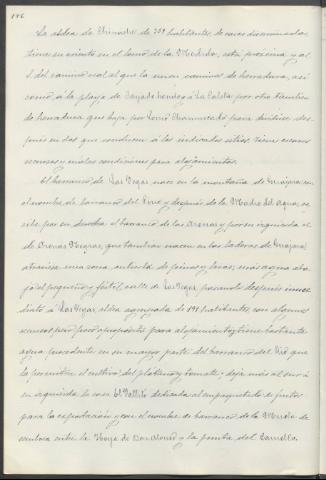 146
La aldea de Chimiche de 359 habitantes de casas diseminadas
tiene su asiento en el lomo de la Medida, esta próxima y al
S. del camino real al que la unen caminos de herradura, así
como á la playa de á La Caleta por otro también
de herradura que baja por Lomo para
pués en dos que conducen á los indicados sitios, tiene escasos
recursos y malas condiciones para alojamientos.
El barranco de Las Vegas nace en la montaña de Guajara con
el nombre de barranco del Río y después de la Madre del Agua, re-
cibe por su derecha el barranco de las Arenas y por su izquierda el
de Arenas Negras que también nacen en las laderas de Guajara,
atraviesa una zona cubierta de pinos y mas agua aba-
jo del pequeño y fértil valle de Las Vegas pasando después inme-
diato á Las Vegas, aldea agrupada de 191 habitantes, con algunos
recursos pero poco apropósito para alojamientos, tiene bastante
agua procedente en su mayor parte del barranco del Río que
la permiten el cultivo del plátano y tomate; deja más al sur á
su izquierda la casa El Pallito dedicada al empaquetado de frutos
para la exportación y con el nombre de barranco de la Magdalena
emboca entre la Hoya de Don Alonso y la punta del Camello.